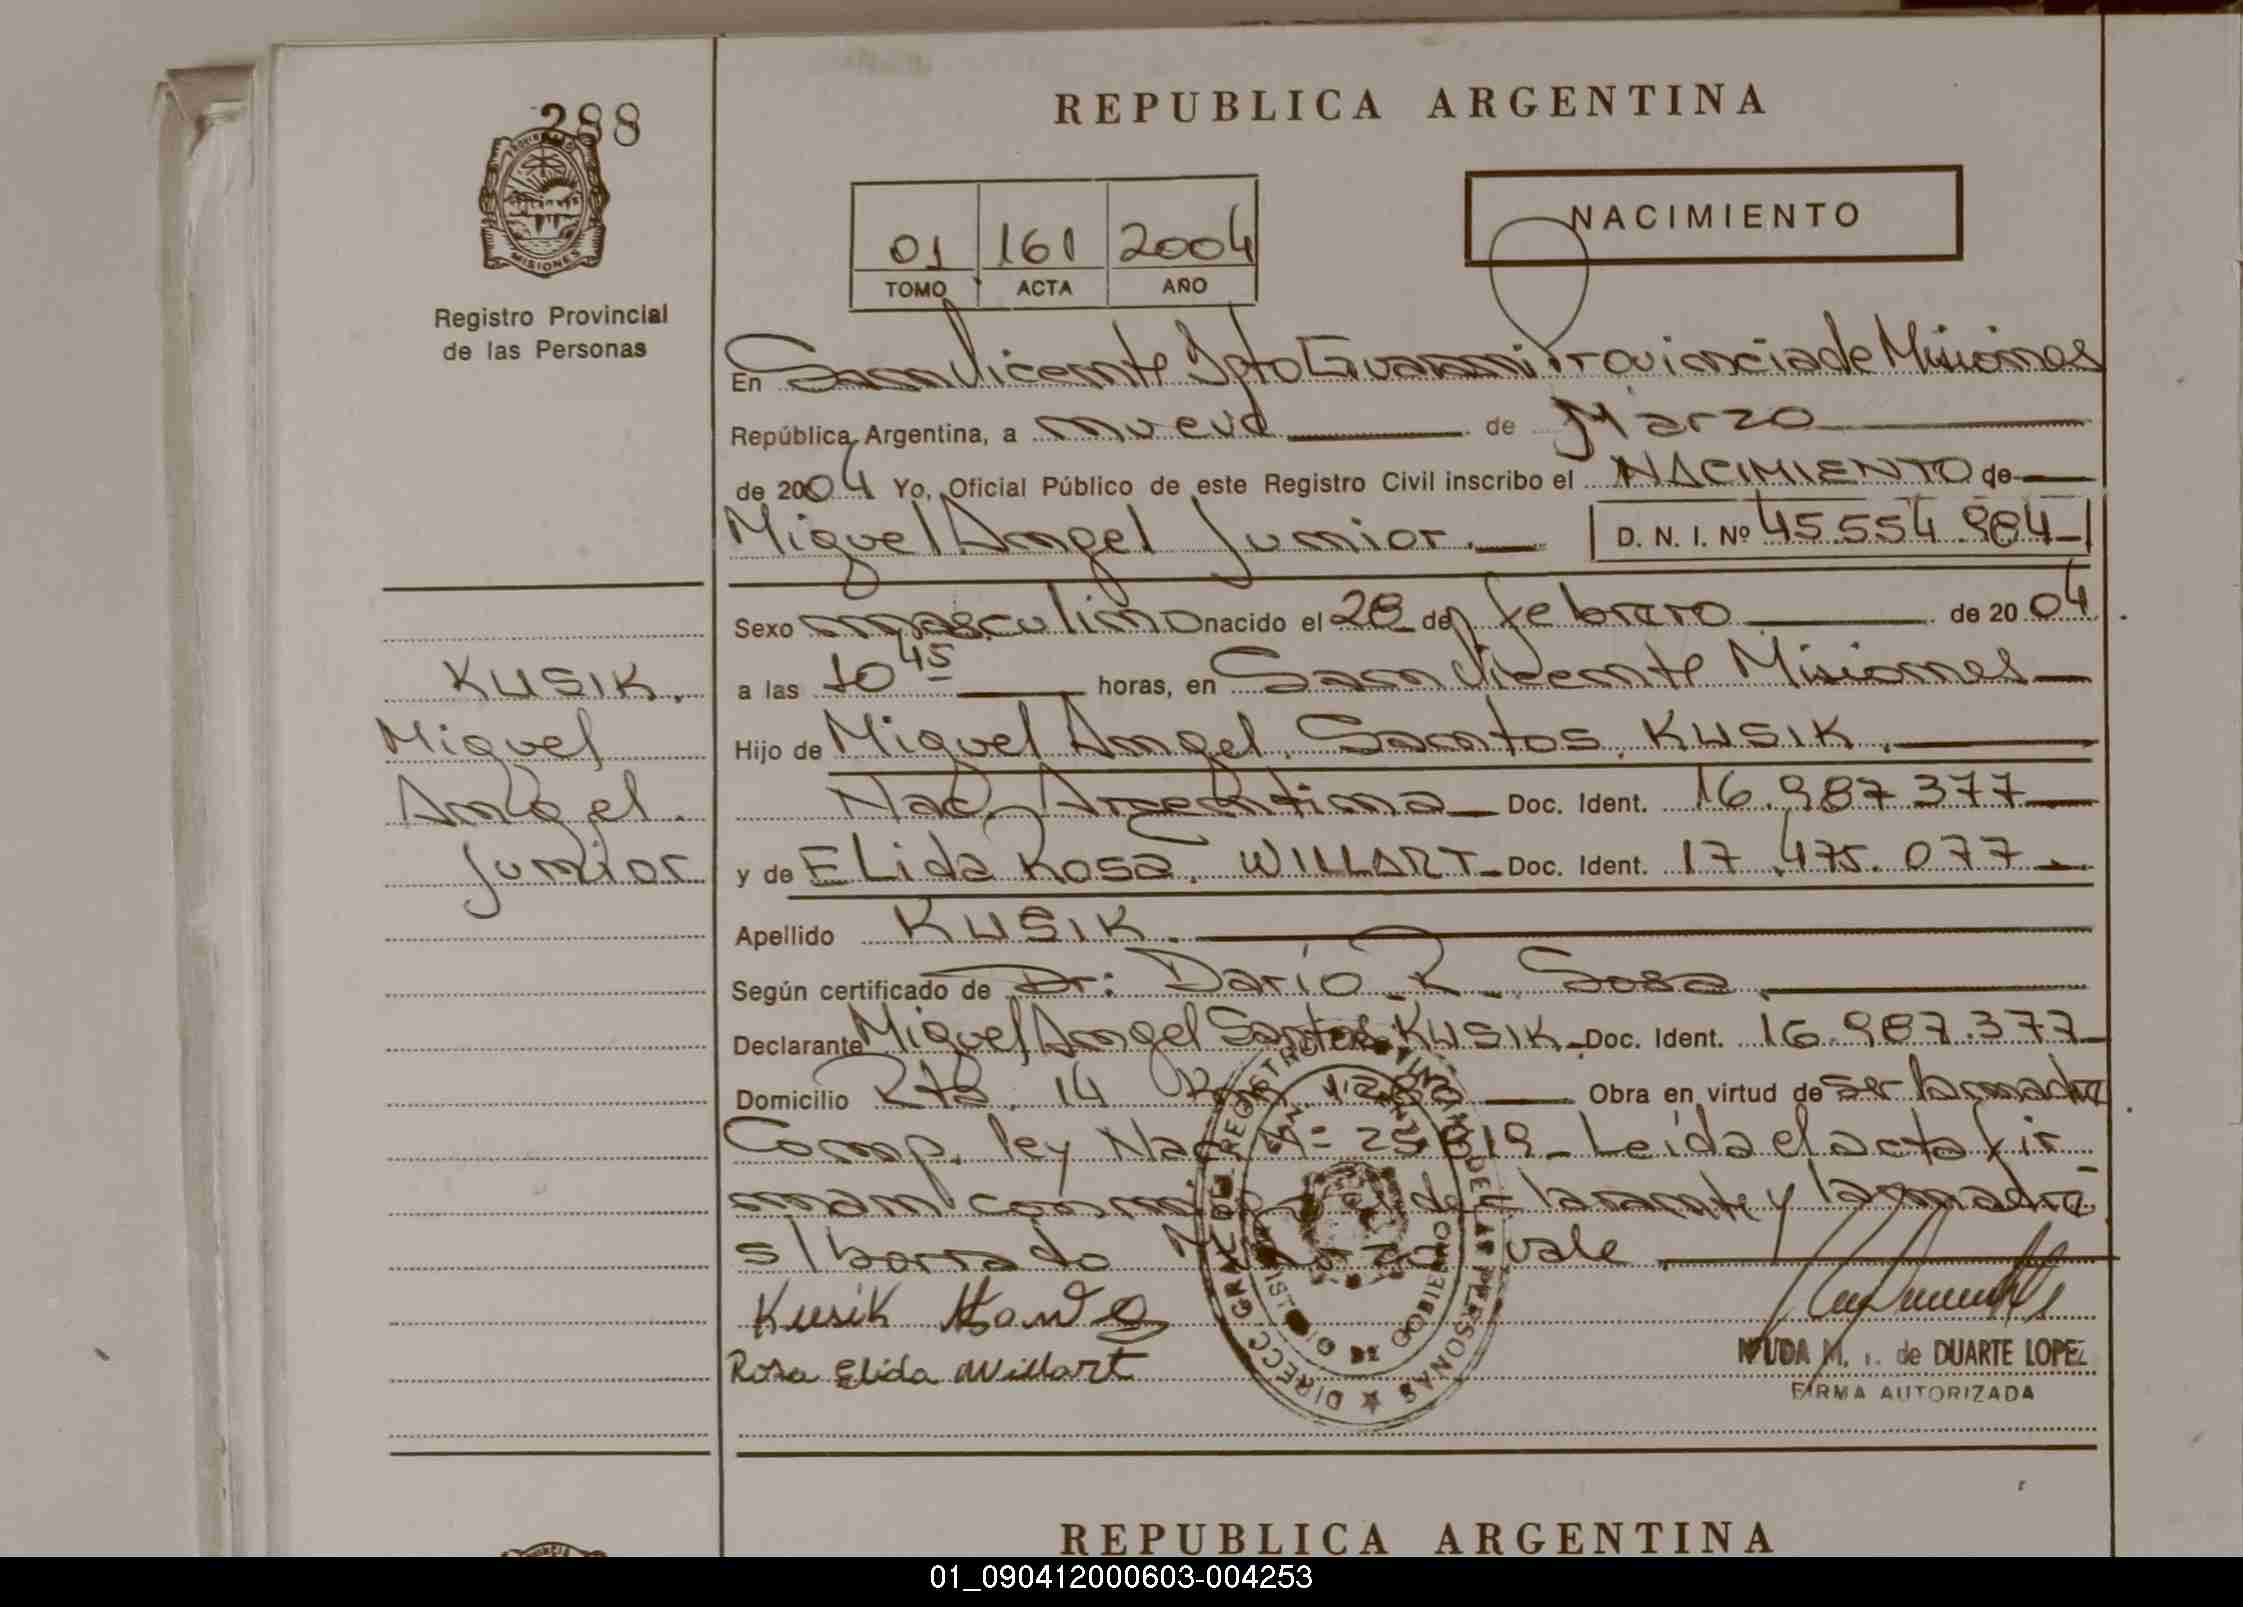 288
PROVINCIA DE
MISIONES
Registro Provincial
de las Personas
REPUBLICA ARGENTINA
NACIMIENTO
01 161 2004
TOMO ACTA AÑO
En San Vicente Dpto Guarani Provincia de Misiones
República Argentina, a nueve de Marzo
de 2004 Yo, Oficial Público de este Registro Civil inscribo el NACIMIENTO de
Miguel Angel Junior. D. N. I. Nº 45.554.984
Sexo masculino nacido el 28 de febrero de 2004
a las 10 45 horas, en San Vicente Misiones
Hijo de Miguel Angel Santos KUSIK.
Nac. Argentina Doc. Ident. 16.987.377
y de ELida Rosa WILLART Doc. Ident. 17.475.077
Apellido KUSIK.
Según certificado de Dr: Darío R. Sosa
Declarante Miguel Angel Santos KUSIK Doc. Ident. 16.987.377
Domicilio Rta. 14 Km Obra en virtud de ser la madre
Comp. ley Nac. Nº 25819 - Leída el acta fir
man conmigo el declarante y la madre
s/borrado Marzo vale
Kusik
Rosa Elida Willart
de DUARTE LOPEZ
FIRMA AUTORIZADA
KUSIK.
Miguel
Angel.
Junior
REPUBLICA ARGENTINA
01_090412000603-004253